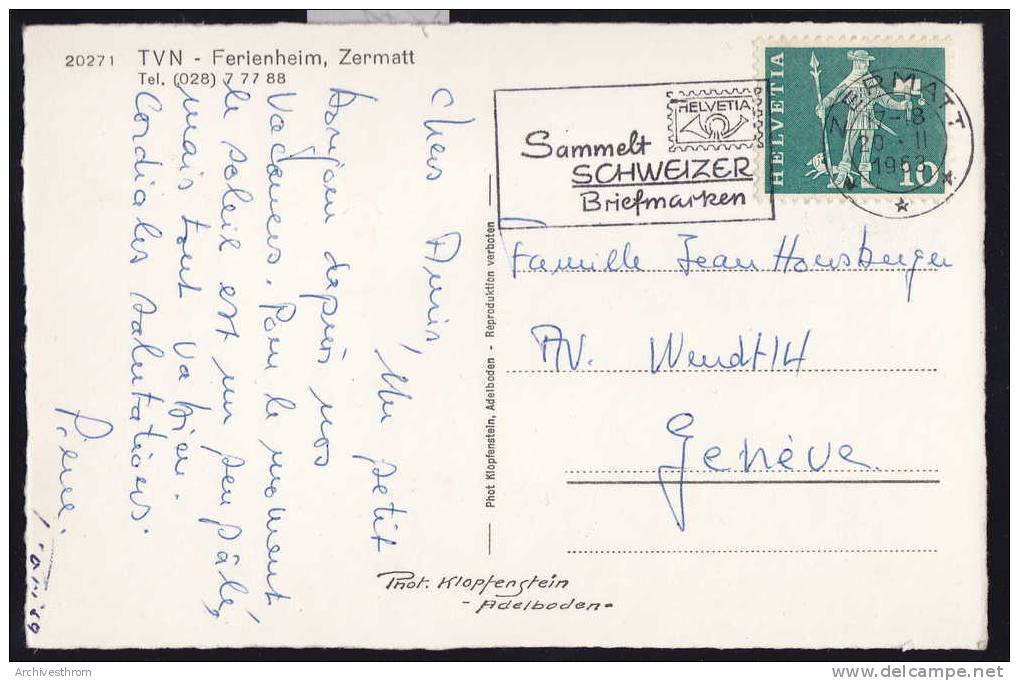 20271 TVN - Ferienheim, Zermatt
Tel. (028) 7 77 88
Chers Amis,
Un petit
bonjour depuis nos
vacances. Pour le moment
le soleil est un peu pâle,
mais tout va bien.
Cordiales salutations.
Pierre.
Phot Klopfenstein, Adelboden - Reproduktion verboten
HELVETIA
Sammelt
SCHWEIZER
Briefmarken
HELVETIA
10
ZERMATT
17-18
20.II
1963
Famille Jean Honsberger
AV. Wendt 14
Genève.
Phot. Klopfenstein
- Adelboden -
Archivesthrom
delcampe.net